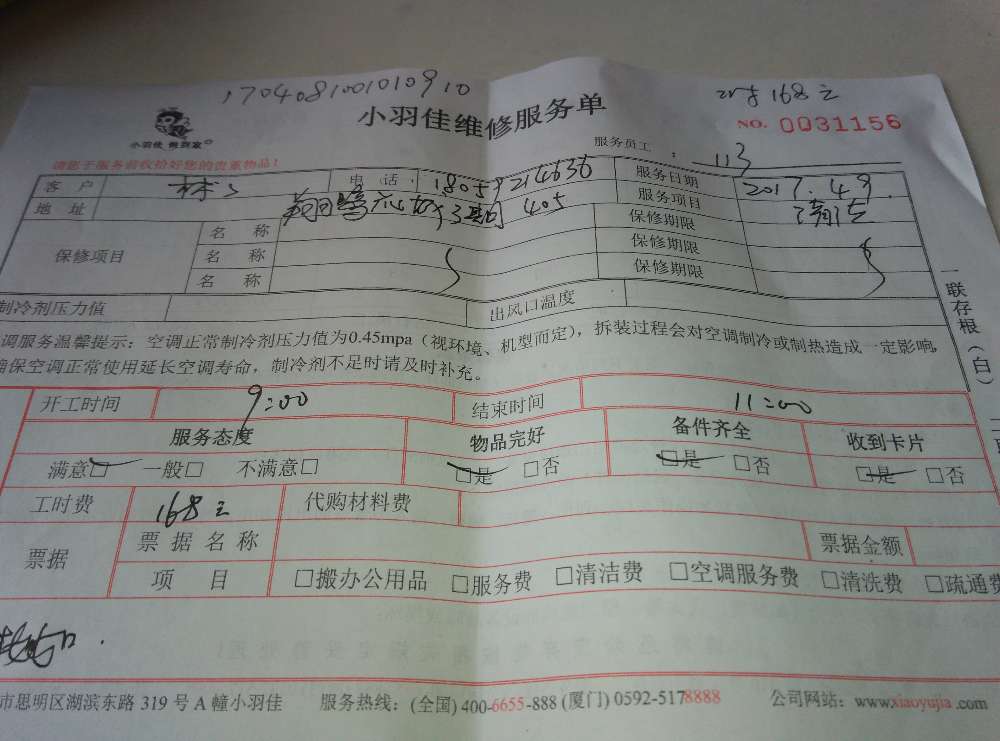 1704081001010910
168元
小羽佳维修服务单
NO. 0031156
小羽佳 做到家
服务员工 : 113
请您于服务前收拾好您的贵重物品!
客户 电话 服务日期 2017.4.9
地址 405 服务项目 清洁
保修项目 名称 保修期限
名称 保修期限
名称 保修期限
制冷剂压力值 出风口温度
调服务温馨提示:空调正常制冷剂压力值为0.45mpa(视环境、机型而定),拆装过程会对空调制冷或制热造成一定影响,
确保空调正常使用延长空调寿命,制冷剂不足时请及时补充。
一联存根(白)
开工时间 9:00 结束时间 11:00
服务态度 物品完好 备件齐全 收到卡片
满意□ 一般□ 不满意□ □是 □否 □是 □否 □是 □否
工时费 168元 代购材料费
票据 票据名称 票据金额
项目 □搬办公用品 □服务费 □清洁费 □空调服务费 □清洗费 □疏通费
市思明区湖滨东路 319 号 A 幢小羽佳 服务热线:(全国) 400-6655-888 (厦门) 0592-5178888 公司网站:www.xiaoyujia.com